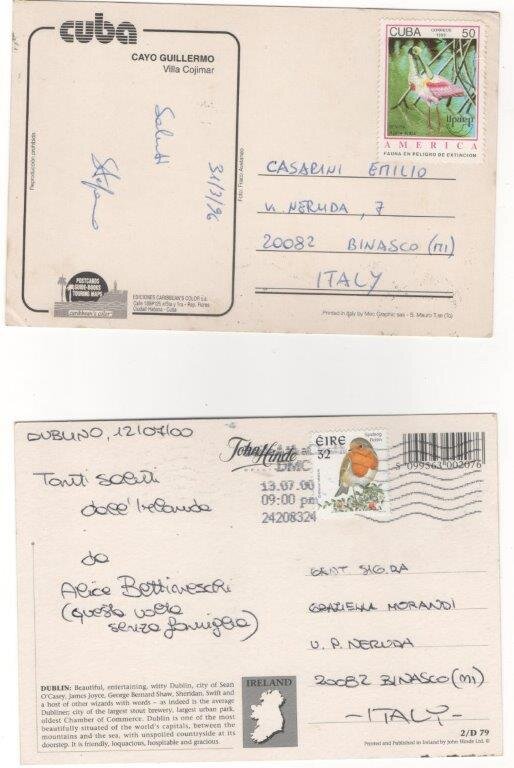 cuba
CAYO GUILLERMO
Villa Cojimar
CUBA CORREOS 50
Upaep
AMERICA
FAUNA EN PELIGRO DE EXTINCION
Saluti
Stefano
31/7/96
Reproducción prohibida
CASARINI EMILIO
V. NERUDA, 7
20082 BINASCO (MI)
ITALY
POSTCARDS
GUIDE-BOOKS
TOURING MAPS
caribbean's color
EDICIONES CARIBBEAN'S COLOR s.a.
Ciudad Habana - Cuba
Printed in Italy by Moc Graphic sas - S. Mauro T.se (To)
DUBLINO, 12/07/00
Tanti saluti
dall'Irlanda
da
Alice Bettineschi
(questa volta
senza famiglia)
John Hinde
DMC
13.07.00
09:00 pm
24208324
ÉIRE
32
5 099563 002076
GENT SIG.RA
GRAZIELLA MORANDI
V. P. NERUDA
20082 BINASCO (MI)
-ITALY-
DUBLIN: Beautiful, entertaining, witty Dublin, city of Sean
O'Casey, James Joyce, George Bernard Shaw, Sheridan, Swift and
a host of other wizards with words – as indeed is the average
Dubliner: city of the largest stout brewery, largest urban park,
oldest Chamber of Commerce. Dublin is one of the most
beautifully situated of the world's capitals, between the
mountains and the sea, with unspoiled countryside at its
doorstep. It is friendly, loquacious, hospitable and gracious.
IRELAND
2/D 79
Printed and Published in Ireland by John Hinde Ltd. ©